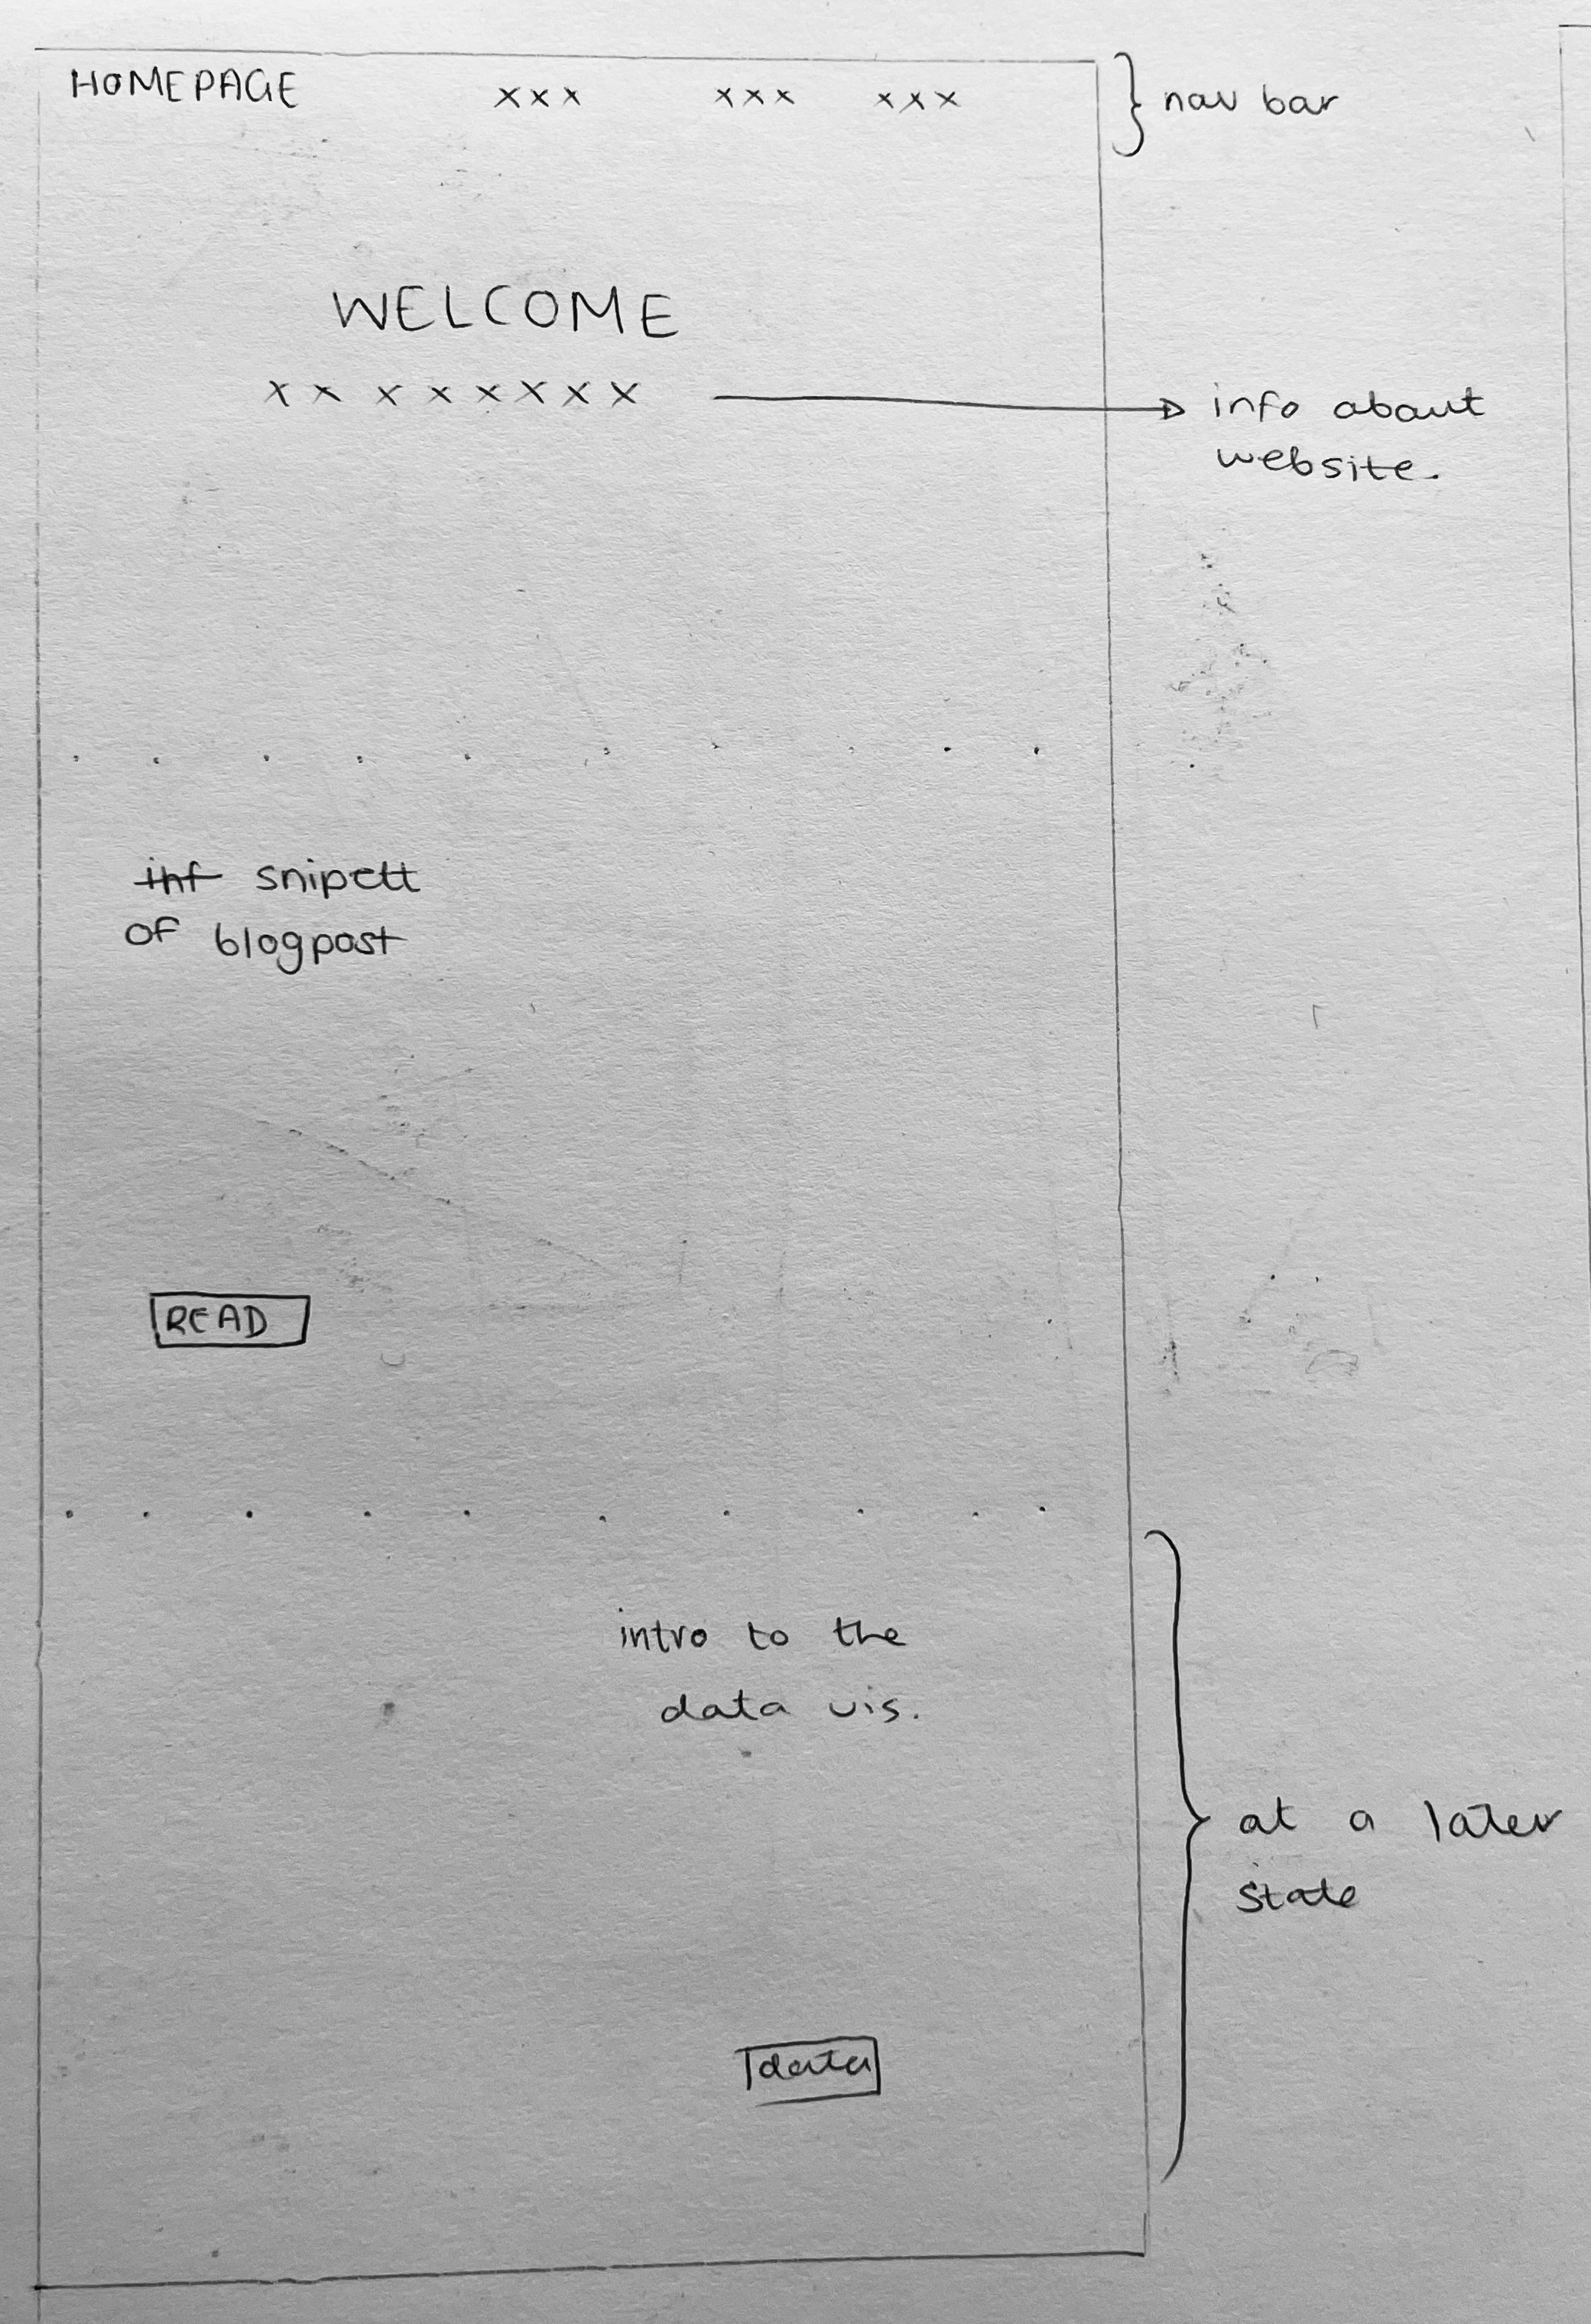 HOMEPAGE xxx xxx xxx nav bar
WELCOME
x x x x x x x x info about
website.
inf snipett
of blogpost
READ
intro to the
data vis.
at a later
state
data